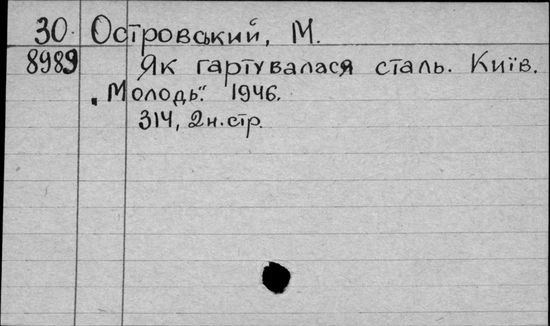 30. Островський, М.
8989 Як гартувалася сталь. Київ.
„Молодь". 1946.
314, 2 н. стр.